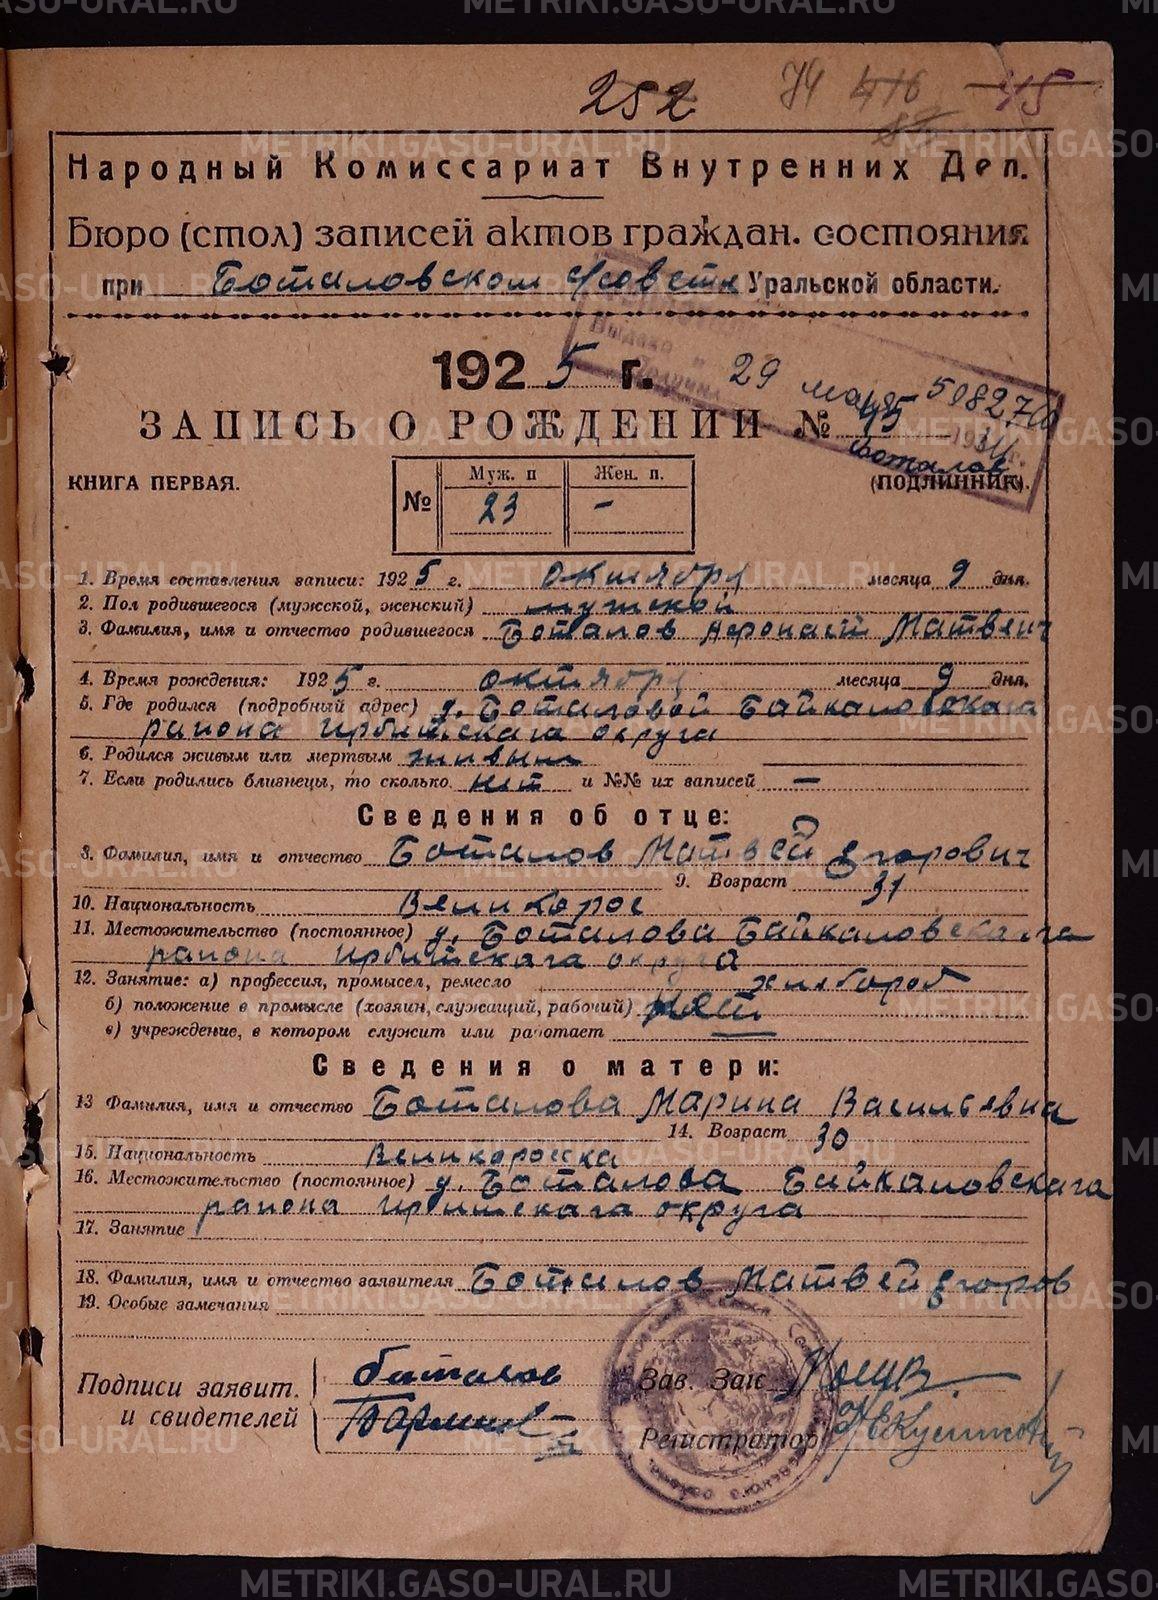 252 74 416 45
Народный Комиссариат Внутренних Дел.
Бюро (стол) записей актов граждан. состояния
при Боталовском с/совете Уральской области.
1925 г. 29 508270
ЗАПИСЬ О РОЖДЕНИИ № 45
Боталов
КНИГА ПЕРВАЯ. (ПОДЛИННИК).
Муж. п Жен. п.
№ 23 –
1. Время составления записи: 1925 г. октября месяца 9 дня.
2. Пол родившегося (мужской, женский) мужской
3. Фамилия, имя и отчество родившегося Боталов Афонаст Матвеич
4. Время рождения: 1925 г. октября месяца 9 дня.
5. Где родился (подробный адрес) д. Боталовой Байкаловскага
раиона Ирбитскага округа
6. Родился живым или мертвым живым
7. Если родились близнецы, то сколько нет и №№ их записей —
Сведения об отце:
8. Фамилия, имя и отчество Боталов Матвей Егорович
9. Возраст 31
10. Национальность Великорос
11. Местожительство (постоянное) д. Боталова Байкаловскага
раиона Ирбитскага округа
12. Занятие: а) профессия, промысел, ремесло хлебороб
б) положение в промысле (хозяин, служащий, рабочий) нет
в) учреждение, в котором служит или работает
Сведения о матери:
13 Фамилия, имя и отчество Боталова Марина Васильевна
14. Возраст 30
15. Национальность Великороска
16. Местожительство (постоянное) д. Боталова Байкаловскага
раиона Ирбитскага округа
17. Занятие
18. Фамилия, имя и отчество заявителя Боталов Матвей Егоров
19. Особые замечания
Подписи заявит. Боталов Зав. Загс
и свидетелей Регистратор
METRIKI.GASO-URAL.RU